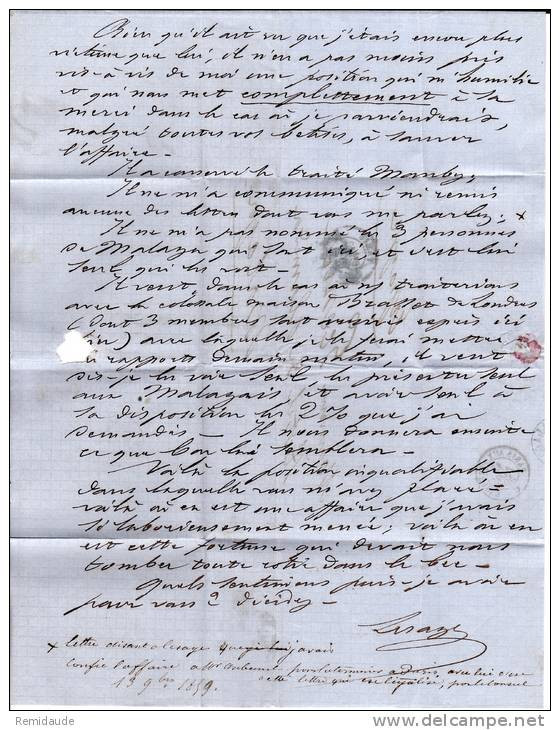 Bien qu'il ait vu que j'étais encore plus
victime que lui, il n'en a pas moins pris
vis-à-vis de moi une position qui m'humilie
et qui nous met complettement à sa
merci dans le cas où je parviendrais,
malgré toutes vos bêtises, à sauver
l'affaire -
Il a conservé le traité Manby;
Il ne m'a communiqué ni remis
aucune des lettres dont vous me parlez; x
Il ne m'a pas nommé les 3 personnes
de Malaga qui sont ici, et c'est lui
seul qui les voit -
Il veut, dans le cas où ns traiterions
avec la colossale maison Brasset de Londres
(dont 3 membres sont arrivés exprès ici
hier) avec laquelle je le ferai mettre
en rapport demain matin, il veut
dis-je la voir seul, la présenter seul
aux Malagais, et avoir seul à
sa disposition les 2% que j'ai
demandés - Il nous donnera ensuite
ce que bon lui semblera -
Voilà la position inqualifiable
dans laquelle vous m'avez placé; -
voilà où en est une affaire que j'avais
si laborieusement menée; voilà où en
est cette fortune qui devait nous
tomber toute rotie dans le bec -
Quels sentimens puis-je avoir
pour vous? Décidez -
Lesage
x lettre disant a lesage que j'avais
confié l'affaire a Mr
cette lettre qui en
13 9bre 1859.
Remidaude
www.delcampe.net